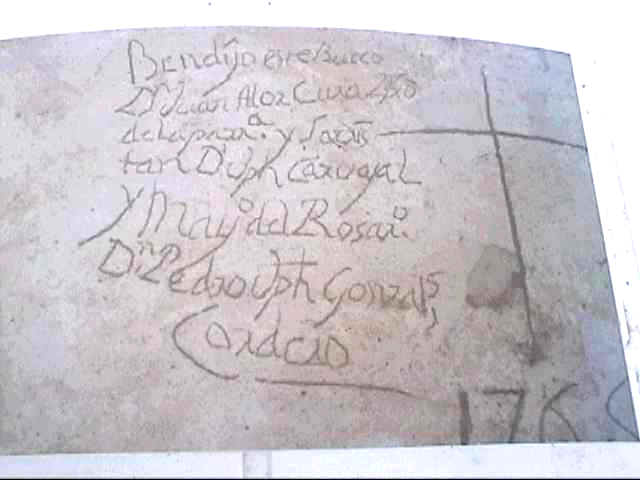 Bendijo este Barco
Dn Juan Aloz Cura
de la parra.a y Sacris
tan Dn Jph Carvajal
y Mayo del Rosario.
Dn Pedro Jph Gonzals
Cordero
176